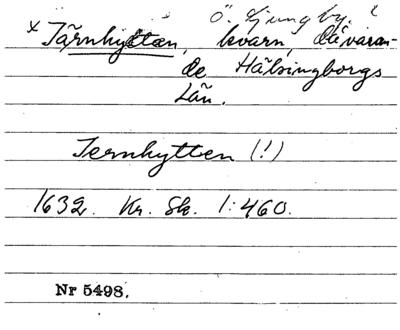 Ö. Ljungby. x
x Tärnhyttan, kvarn, dåvaran-
de Hälsingborgs
Län.
Ternhytten (!)
1632. Kr. Sk. 1:460.
Nr 5498.